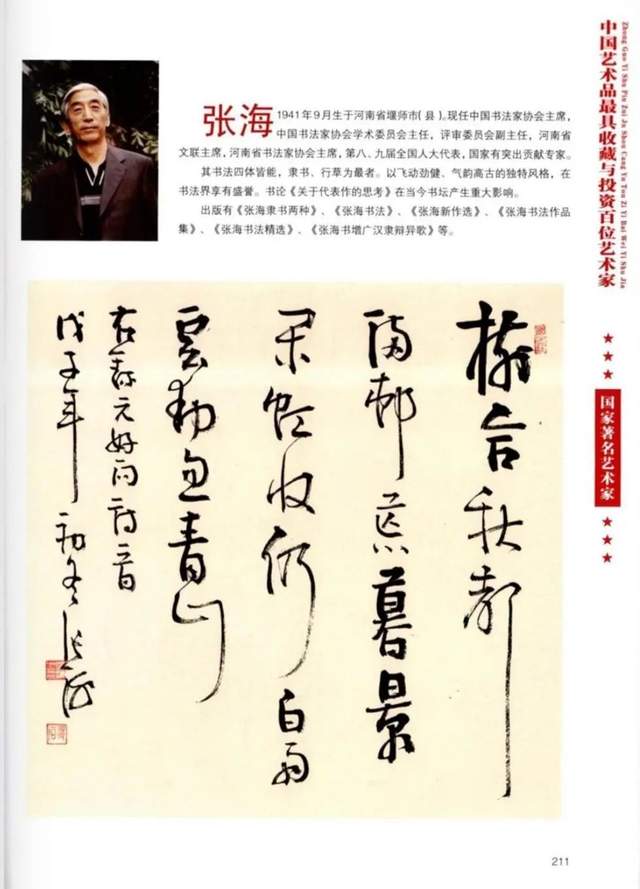 张海 1941年9月生于河南省堰师市(县)。现任中国书法家协会主席,
中国书法家协会学术委员会主任,评审委员会副主任,河南省
文联主席,河南省书法家协会主席,第八、九届全国人大代表,国家有突出贡献专家。
其书法四体皆能,隶书、行草为最者。以飞动劲健、气韵高古的独特风格,在
书法界享有盛誉。书论《关于代表作的思考》在当今书坛产生重大影响。
出版有《张海隶书两种》、《张海书法》、《张海新作选》、《张海书法作品
集》、《张海书法精选》、《张海书增广汉隶辩异歌》等。
樹合秋声
满村荒暮景
闲虹收仍白雨
雲動忽青山
右录元好问诗一首
戊子年初冬张海
Zhong Guo Yi Shu Pin Zui Ju Shou Cang Yu Tou Zi Yi Bai Wei Yi Shu Jia
中国艺术品最具收藏与投资百位艺术家
国家著名艺术家
211